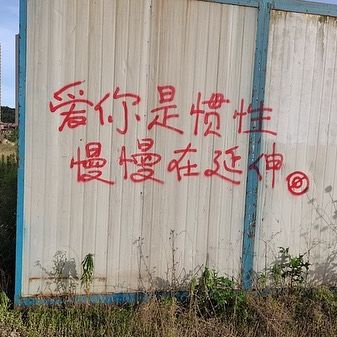 爱你是惯性
慢慢在延伸